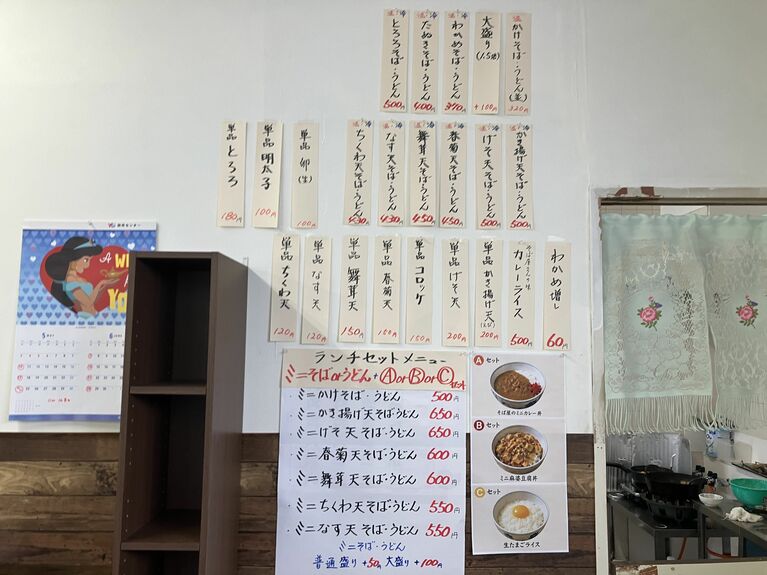 温・冷
かけそば・うどん(並)
320
大盛り(1.5倍)
+100円
温・冷
わかめそば・うどん
370
温・冷
たぬきそば・うどん
400円
温・冷
とろろそば・うどん
500円
温・冷
かき揚げ天そば・うどん
500円
温・冷
げそ天そば・うどん
500円
温・冷
春菊天そば・うどん
450円
温・冷
舞茸天そば・うどん
450
温・冷
なす天そば・うどん
430円
温・冷
ちくわ天そば・うどん
430
単品 卵(生)
100円
単品 明太子
100円
単品 とろろ
180円
わかめ増し
60円
そば屋さんの
カレーライス
500円
単品 かき揚げ天
200円
単品 げそ天
200円
単品 コロッケ
150円
単品 春菊天
150円
単品 舞茸天
150円
単品 なす天
120円
単品 ちくわ天
120円
ランチセットメニュー
ミニそばorうどん+ⒶorⒷorⒸセット
・ミニかけそば・うどん 500円
・ミニかき揚げ天そば・うどん 650円
・ミニげそ天そば・うどん 650円
・ミニ春菊天そば・うどん 600円
・ミニ舞茸天そば・うどん 600円
・ミニちくわ天そば・うどん 550円
・ミニなす天そば・うどん 550円
ミニそば・うどん
普通盛り+50円 大盛り+100円
A セット
そば屋のミニカレー丼
B セット
ミニ麻婆豆腐丼
C セット
生たまごライス
A W
YO
5
6